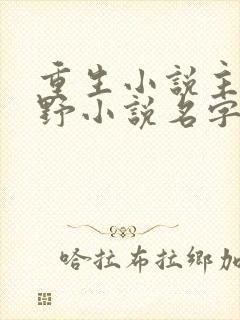 重生小說主
野小說名字
哈拉布拉鄉加